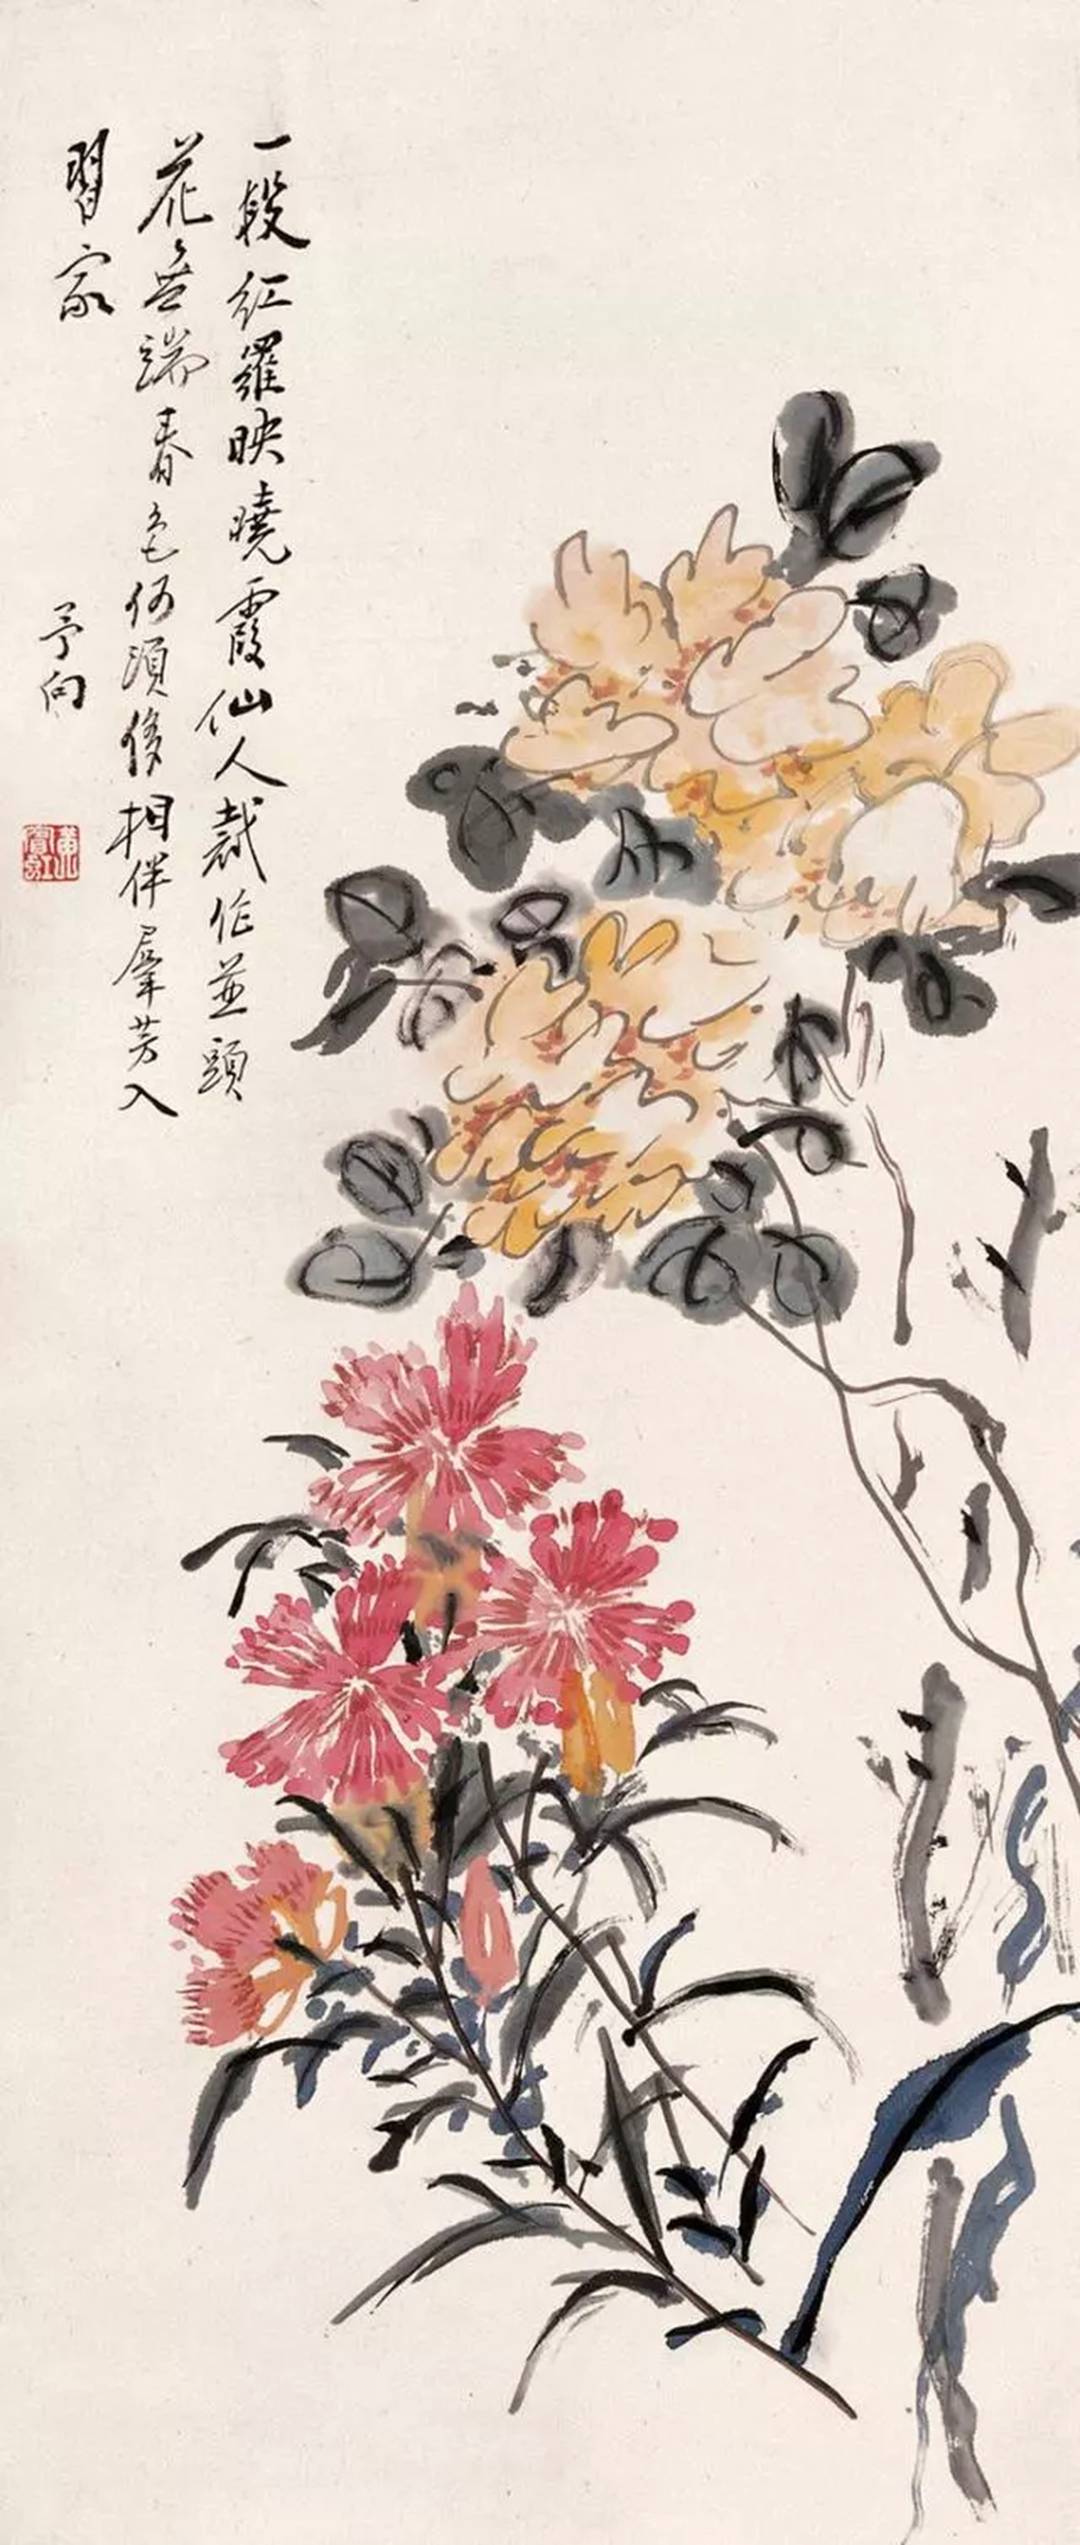 一段红羅映曉霞仙人裁作並頭
花無端春色何須侈相伴羣芳入
習家
予向
黄賓虹